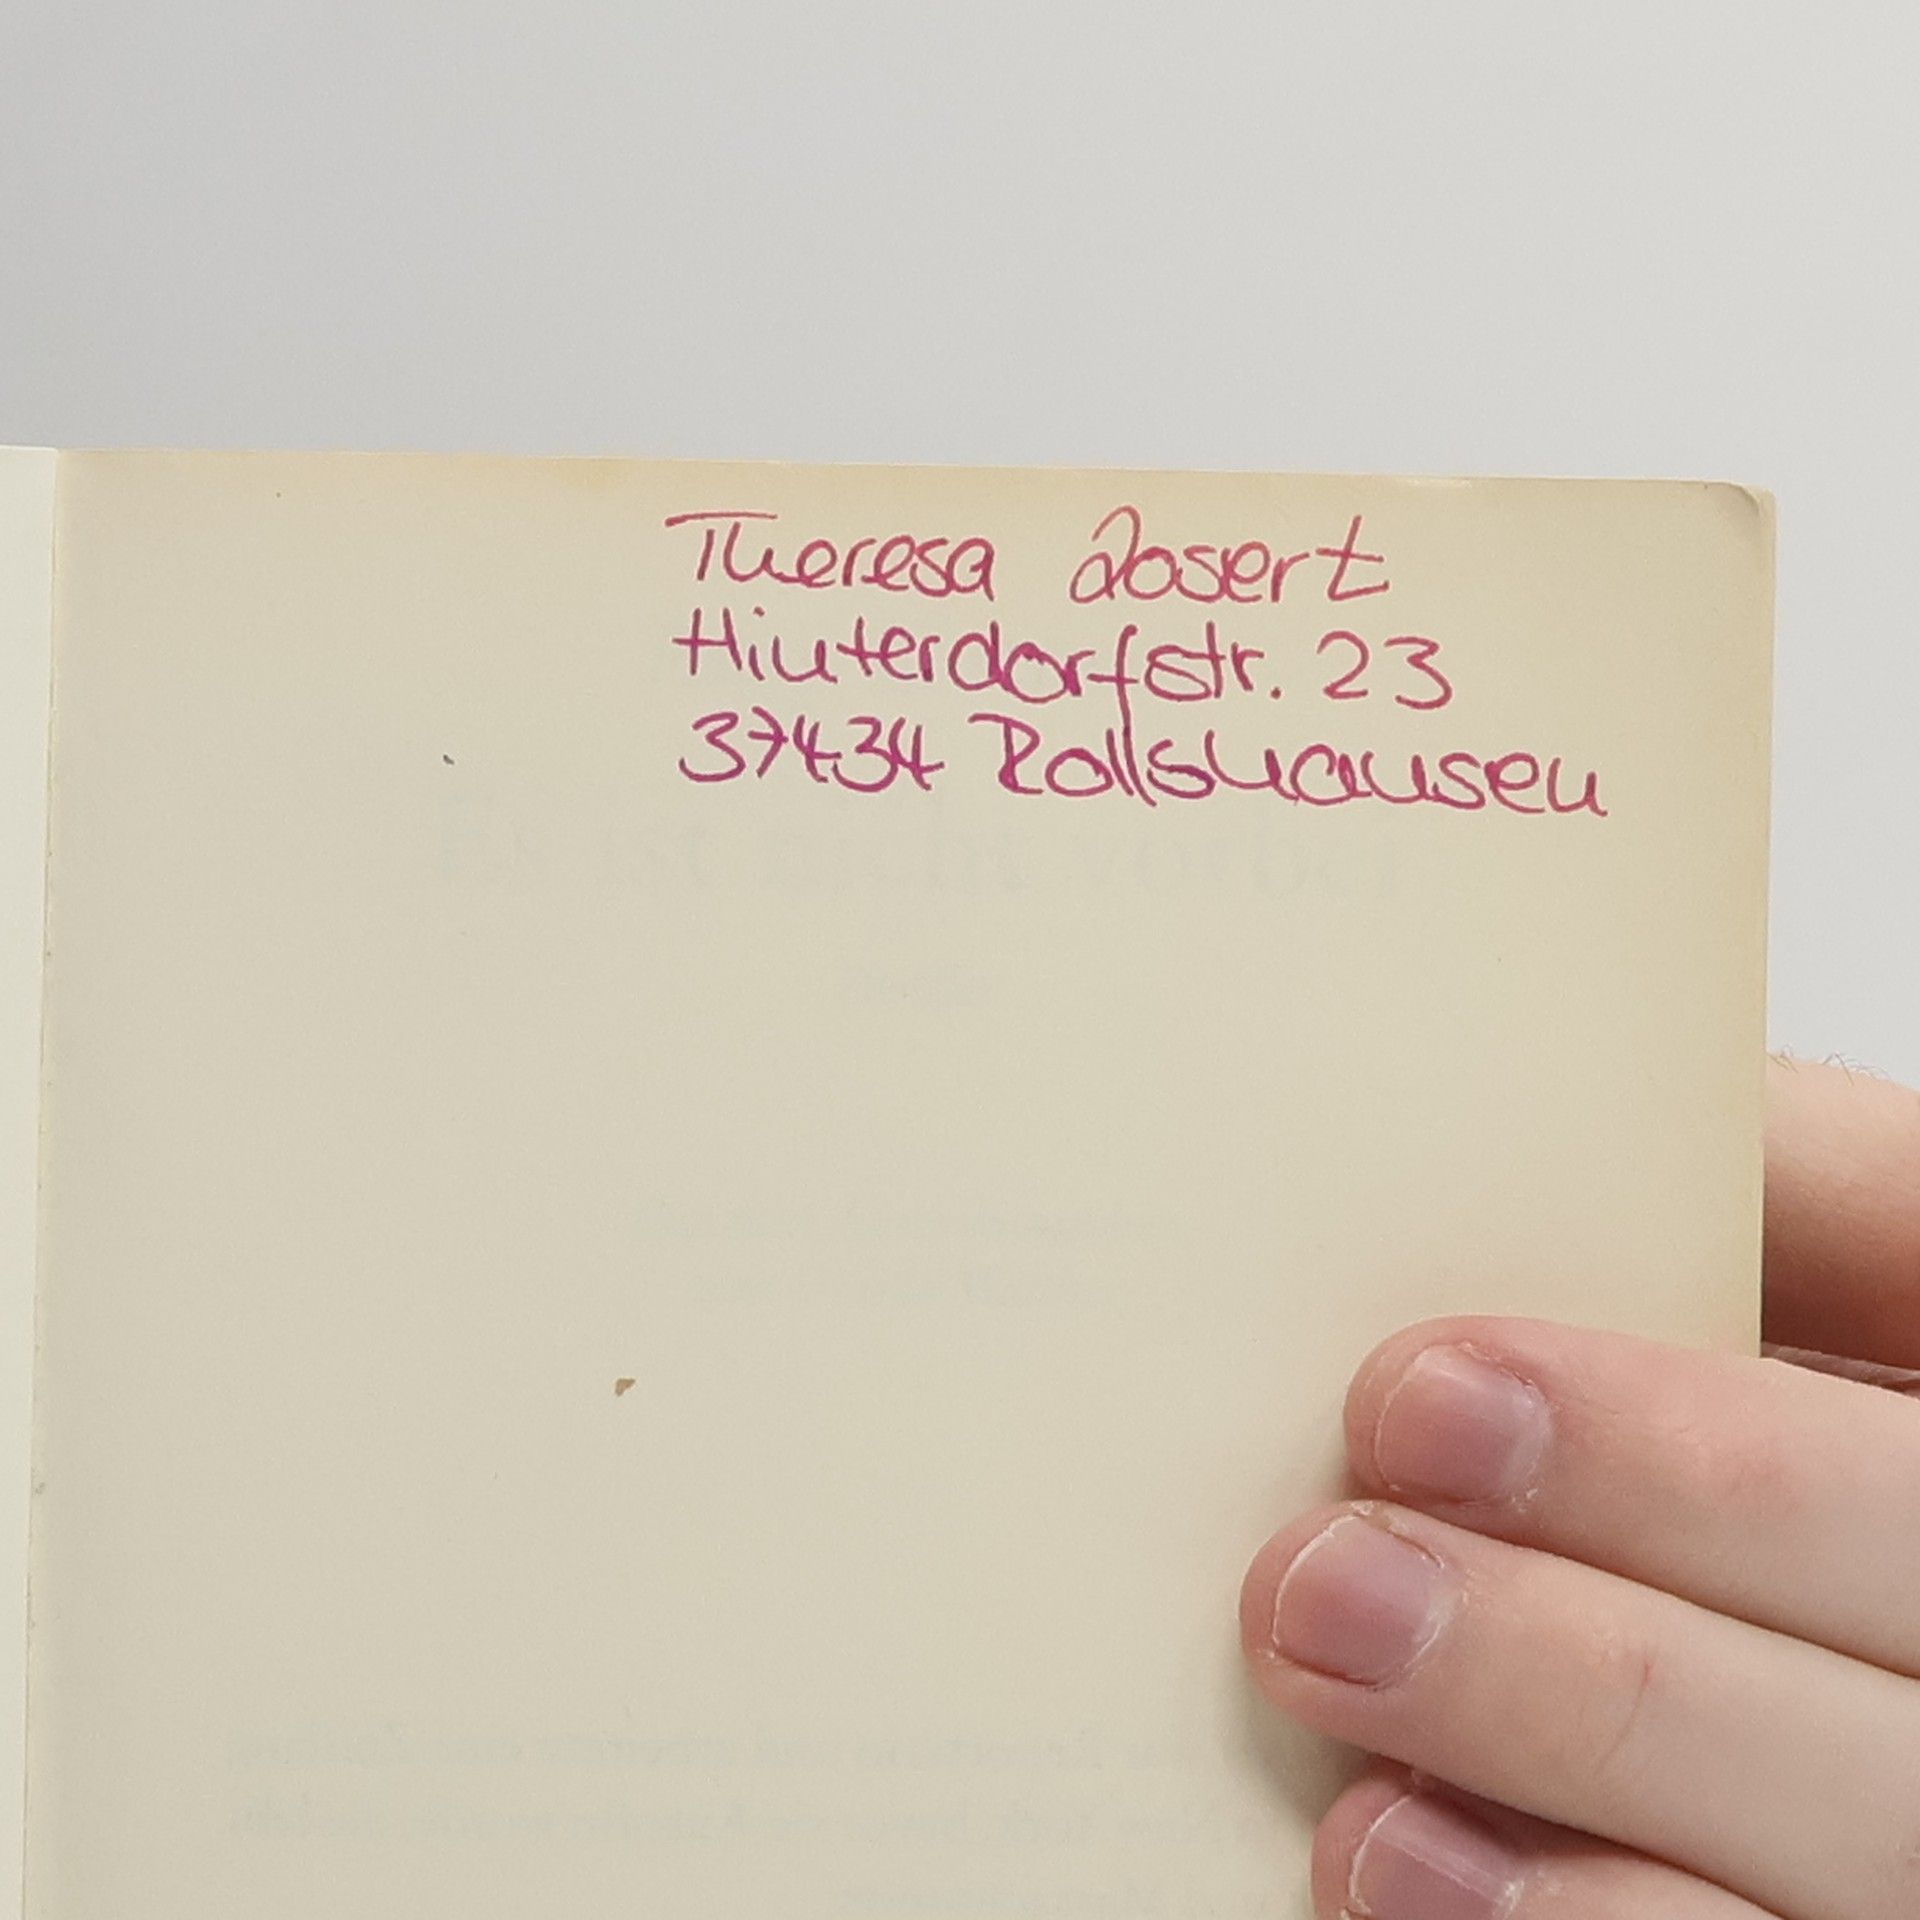 Theresa Losert
Hinterdorfstr. 23
37434 Rollshausen